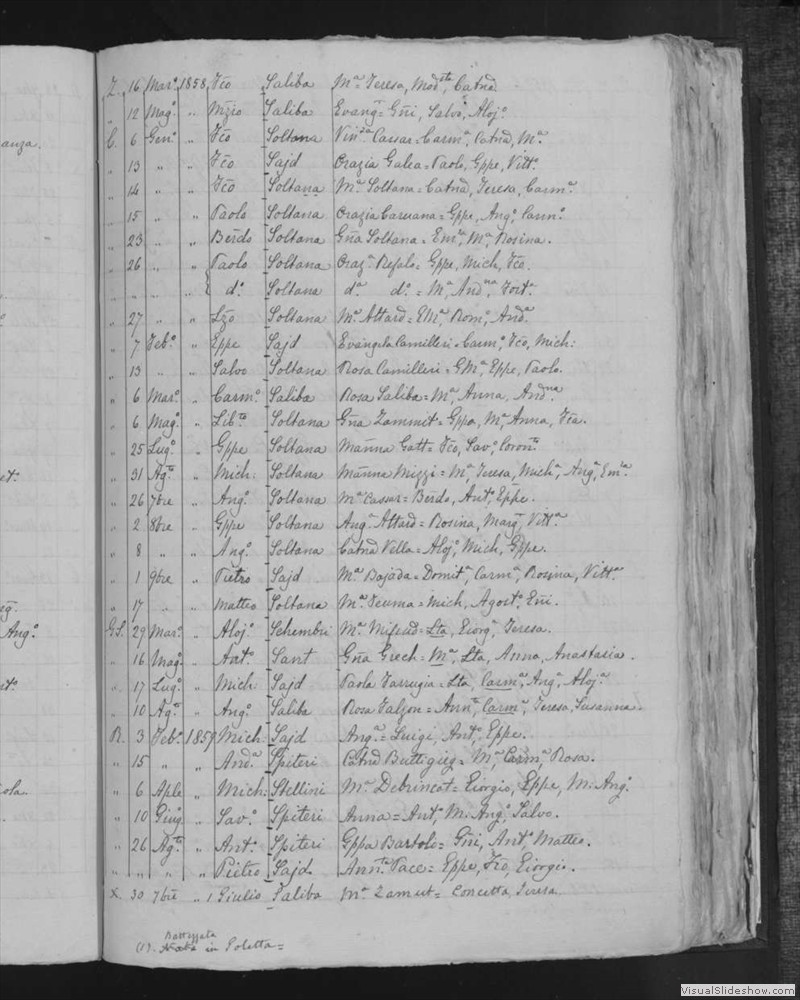 anza.
et.
eg.
Ang.º
nt.º
ola.
Z. 16 Mar.º 1858 Fco Saliba Mª Teresa, Mod.sta Catnª
" 12 Mag.º " Nzio Saliba Evang.ª Gñi, Salv.º, Aloj.º
C. 6 Gen.º " Fco Soltana Vin.za Cassar = Carm.ª, Catnª, Mª
" 13 " " Fco Sajd Orazia Galea = Paolo, Gppe, Vitt.ª
" 14 " " Fco Soltana Mª Soltana = Catnª, Teresa, Carm.ª
" 15 " " Paolo Soltana Orazia Caruana = Gppe, Ang.º, Carm.º
" 23 " " Berdo Soltana Gña Soltana = Em.la, Mª, Rosina.
" 26 " " Paolo Soltana Oraz.ª Refalo = Gppe, Mich, Fco.
" " " " d.º Soltana d.ª d.º = Mª, And.na, Fort.ª
" 27 " " Lzo Soltana Mª Attard = EMª, Rom.º, And.ª
" 7 Feb.º " Gppe Sajd Evangela Camilleri = Carm.º, Fco, Mich:
" 13 " " Salvo Soltana Rosa Camilleri = GMª, Gppe, Paolo.
" 6 Mar.º " Carm.º Saliba Rosa Saliba = Mª, Anna, And.na
" 6 Mag.º " Lib.to Soltana Gña Zammit = Gppa, Mª Anna, Fca.
" 25 Lug.º " Gppe Soltana Manna Gatt = Fco, Sav.º, Coron.to
" 31 Ag.to " Mich: Soltana Manna Mizzi = Mª, Teresa, Mich.ª, Ang.ª, Em.la
" 26 7bre " Ang.º Soltana Mª Cassar = Berdo, Ant.º, Gppe.
" 2 8bre " Gppe Soltana Ang.ª Attard = Rosina, Marg.ª, Vitt.ª
" 8 " " Ang.º Soltana Catnª Vella = Aloj.º, Mich, Gppe.
" 1 9bre " Pietro Sajd Mª Bajada = Domit.ª, Carm.ª, Rosina, Vitt.ª
" 17 " " Matteo Soltana Mª Teuma = Mich, Agost.º, Gñi.
GS. 29 Mar.º " Aloj.º Schembri Mª Mifsud = Lta, Giorg.ª, Teresa.
" 16 Mag.º " Ant.º Sant Gña Grech = Mª, Lta, Anna, Anastasia.
" 17 Lug.º " Mich: Sajd Paola Farrugia = Lta, Carm.ª, Ang.ª, Aloj.ª
" 10 Ag.to " Ang.º Saliba Rosa Falzon = Ann.ta, Carm.ª, Teresa, Susanna.
R. 3 Feb.º 1859 Mich: Sajd Ang.ª = Luigi, Ant.º, Gppe.
" 15 " " And.ª Spiteri Catnª Buttigieg = Mª, Carm.ª, Rosa.
" 6 Aple " Mich: Stellini Mª Debrincat = Giorgio, Gppe, M. Ang.º
" 10 Giug.º " Sav.º Spiteri Anna = Ant.º, M. Ang.º, Salvo.
" 26 Ag.to " Ant.º Spiteri Gppa Bartolo = Gñi, Ant.º, Matteo.
" " " " Pietro Sajd Ann.ta Pace = Gppe, Fco, Giorgio.
X. 30 7bre " 1 Giulio Saliba Mª Zamut = Concetta, Teresa
Battezzata
(1). in Goletta =
VisualSlideshow.com